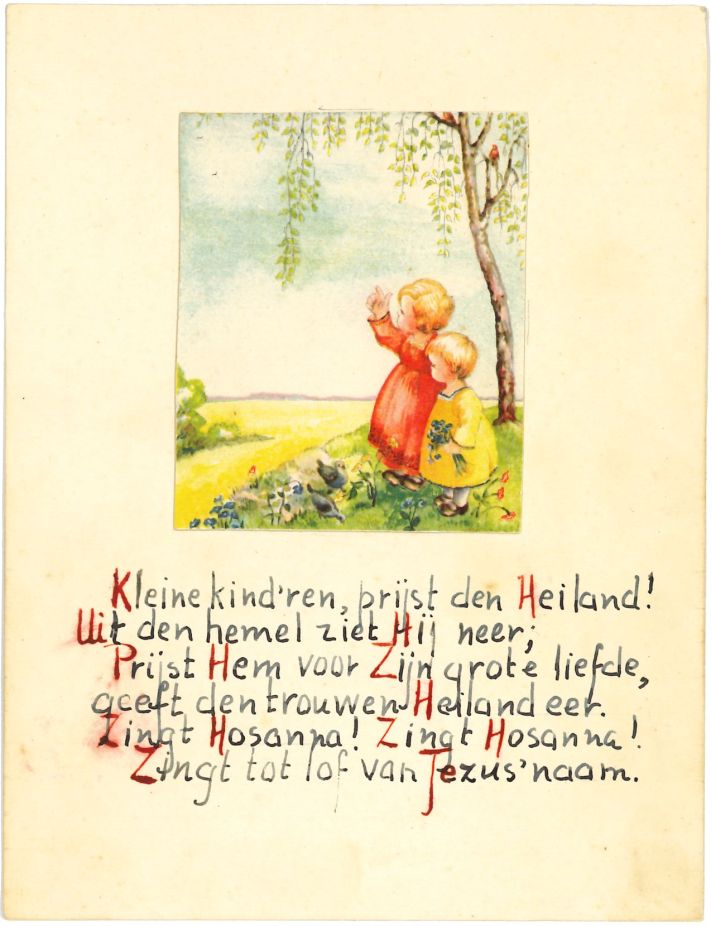 Kleine kind'ren, prijst den Heiland!
Uit den hemel ziet Hij neer;
Prijst Hem voor Zijn grote liefde,
geeft den trouwen Heiland eer.
Zingt Hosanna! Zingt Hosanna!
Zingt tot lof van Jezus' naam.